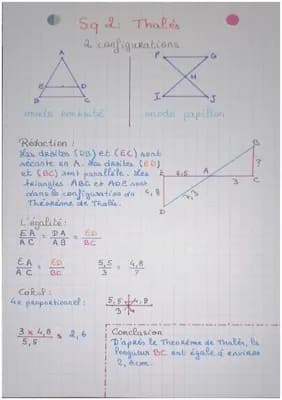 Sq 2: Thalès
2 configurations
A
E D
B C
mode emboîté
F G
H
I J
mode papillon
Rédaction :
Les droites (DB) et (EC) sont
sécante en A. Les droites (ED)
et (BC) sont parallèle. Les
triangles ABC et ADE sont
dans la configuration du
Théorème de Thalès.
B
E 5,5 A ?
3 C
4,8
7,3
D
L'égalité:
EA = DA = ED
AC AB BC
EA = ED 5,5 = 4,8
AC BC 3 ?
Calcul:
4e proportionnel : 5,5 4,8
3 ?
3 x 4,8 ≈ 2,6
5,5
Conclusion
D'après le Théorème de Thalès, la
longueur BC est égale à environ
2,6cm.